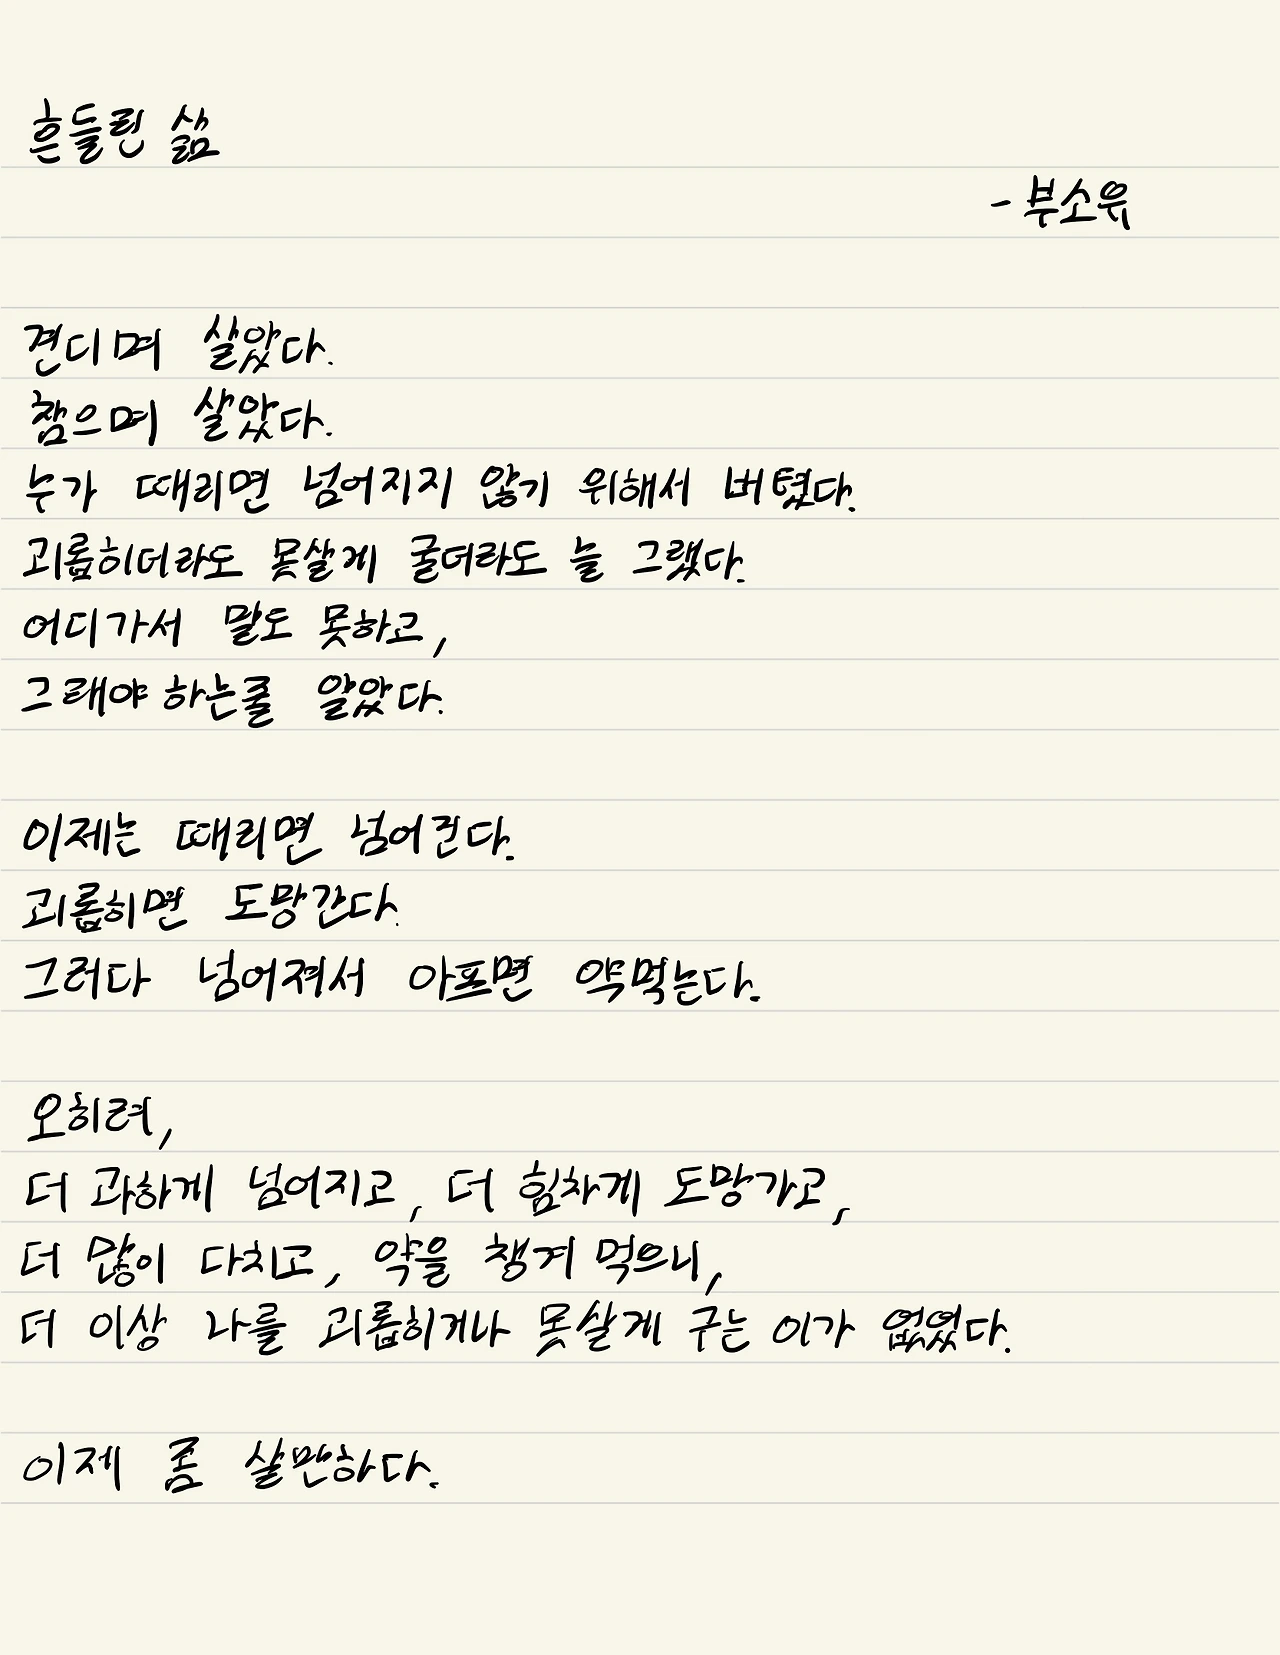 흔들린 삶
- 부소유
견디며 살았다.
참으며 살았다.
누가 때리면 넘어지지 않기 위해서 버텼다.
괴롭히더라도 못살게 굴더라도 늘 그랬다.
어디가서 말도 못하고,
그래야 하는줄 알았다.
이제는 때리면 넘어진다.
괴롭히면 도망간다.
그러다 넘어져서 아프면 약먹는다.
오히려,
더 과하게 넘어지고, 더 힘차게 도망가고,
더 많이 다치고, 약을 챙겨 먹으니,
더 이상 나를 괴롭히거나 못살게 구는 이가 없었다.
이제 좀 살만하다.